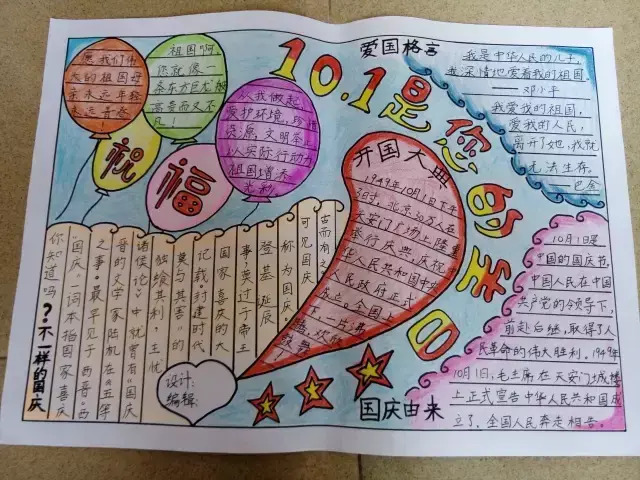 愿我们伟
大的祖国母
亲永远年轻
永远青春!
祖国啊,
您就像一
条东方巨龙,
高贵而又不
凡!
从我做起
爱护环境,珍惜
资源,文明举止
以实际行动为
祖国增添
光彩
祝
福
10.1是您的生日
爱国格言
我是中华人民的儿子,
我深情地爱着我的祖国。
——邓小平
我爱我的祖国,
爱我的人民,
离开了她,我就
无法生存。
——巴金
开国大典
1949年10月1日下午
3时,北京30万人在
天安门广场上隆重
举行庆典,庆祝中
华人民共和国中央
人民政府正式
成立。全国上
下一片沸
腾,欢欣
鼓舞!
10月1日是
中国的国庆节,
中国人民在中国
共产党的领导下,
前赴后继,取得了人
民革命的伟大胜利。1949年
10月1日,毛主席在天安门城楼
上正式宣告中华人民共和国成
立了,全国人民奔走相告。
国庆由来
你知道吗?不一样的国庆
“国庆”一词本指国家喜庆
之事,最早见于西晋。西
晋的文学家陆机在《五等
诸侯论》中就曾有“国庆
独飨其利,主忧
莫与其害”的
记载,封建时代
国家喜庆的大
事,莫过于帝王
登基、诞辰
称为国庆,
可见国庆
古而有之
设计:
编辑: